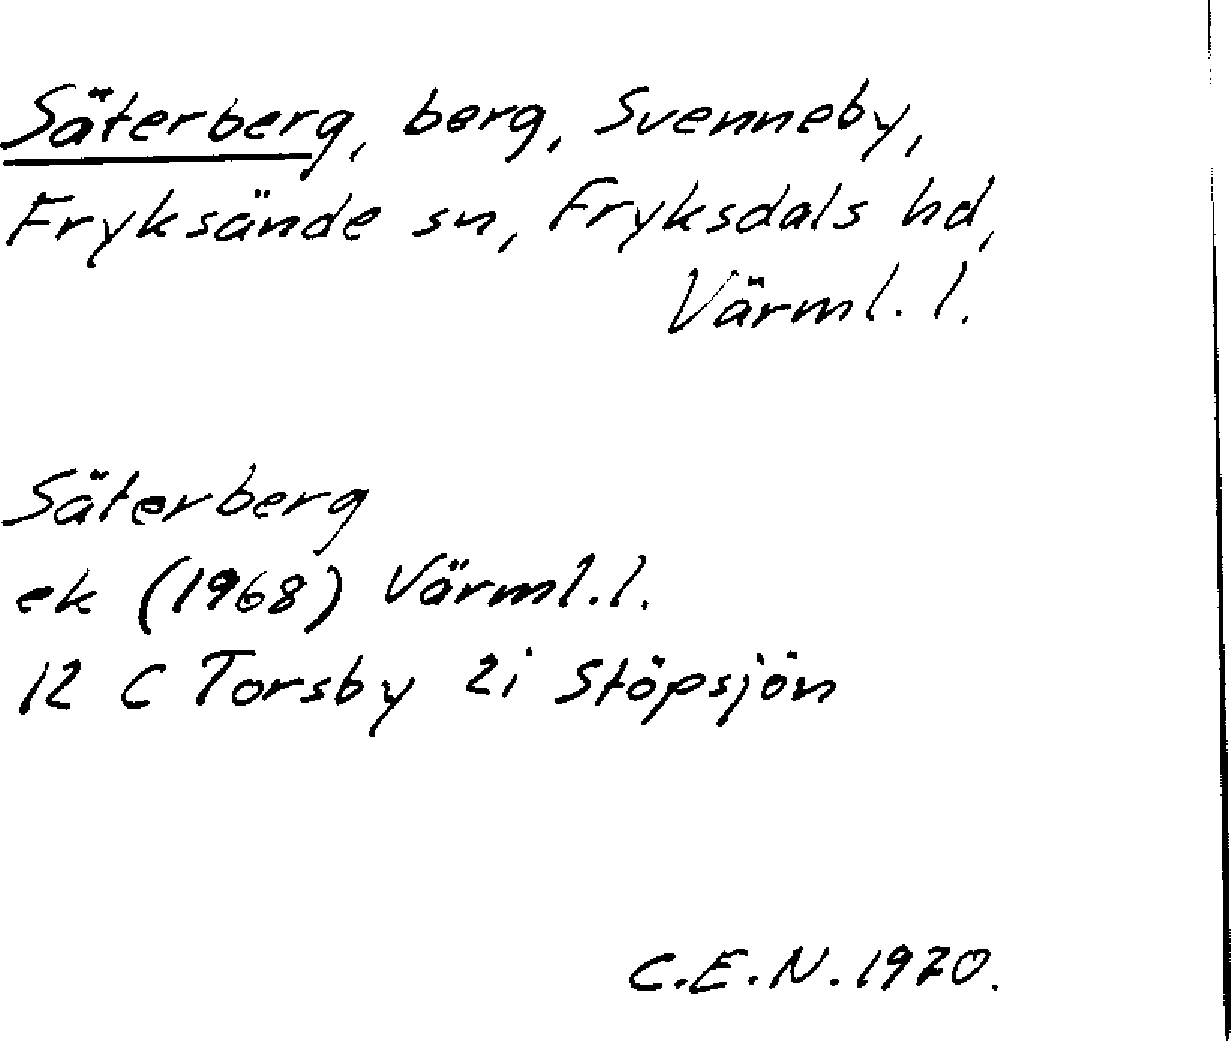 Säterberg, berg, Svenneby,
Fryksände sn, Fryksdals hd,
Värml. l.
Säterberg
ek (1968) Värml.l.
12 C Torsby 2i Stöpsjön
C.E.N. 1970.